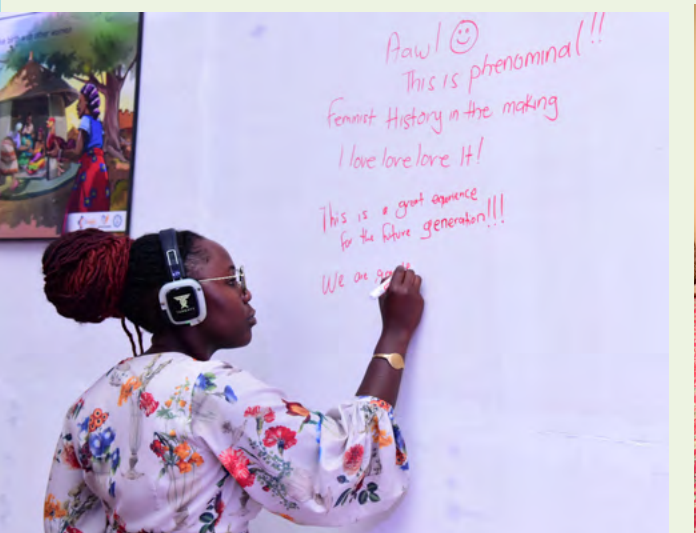 Aaw! ☺
This is phenominal!!
Feminist History in the making
I love love love It!
This is a great experience
for the future generation!!!
We are